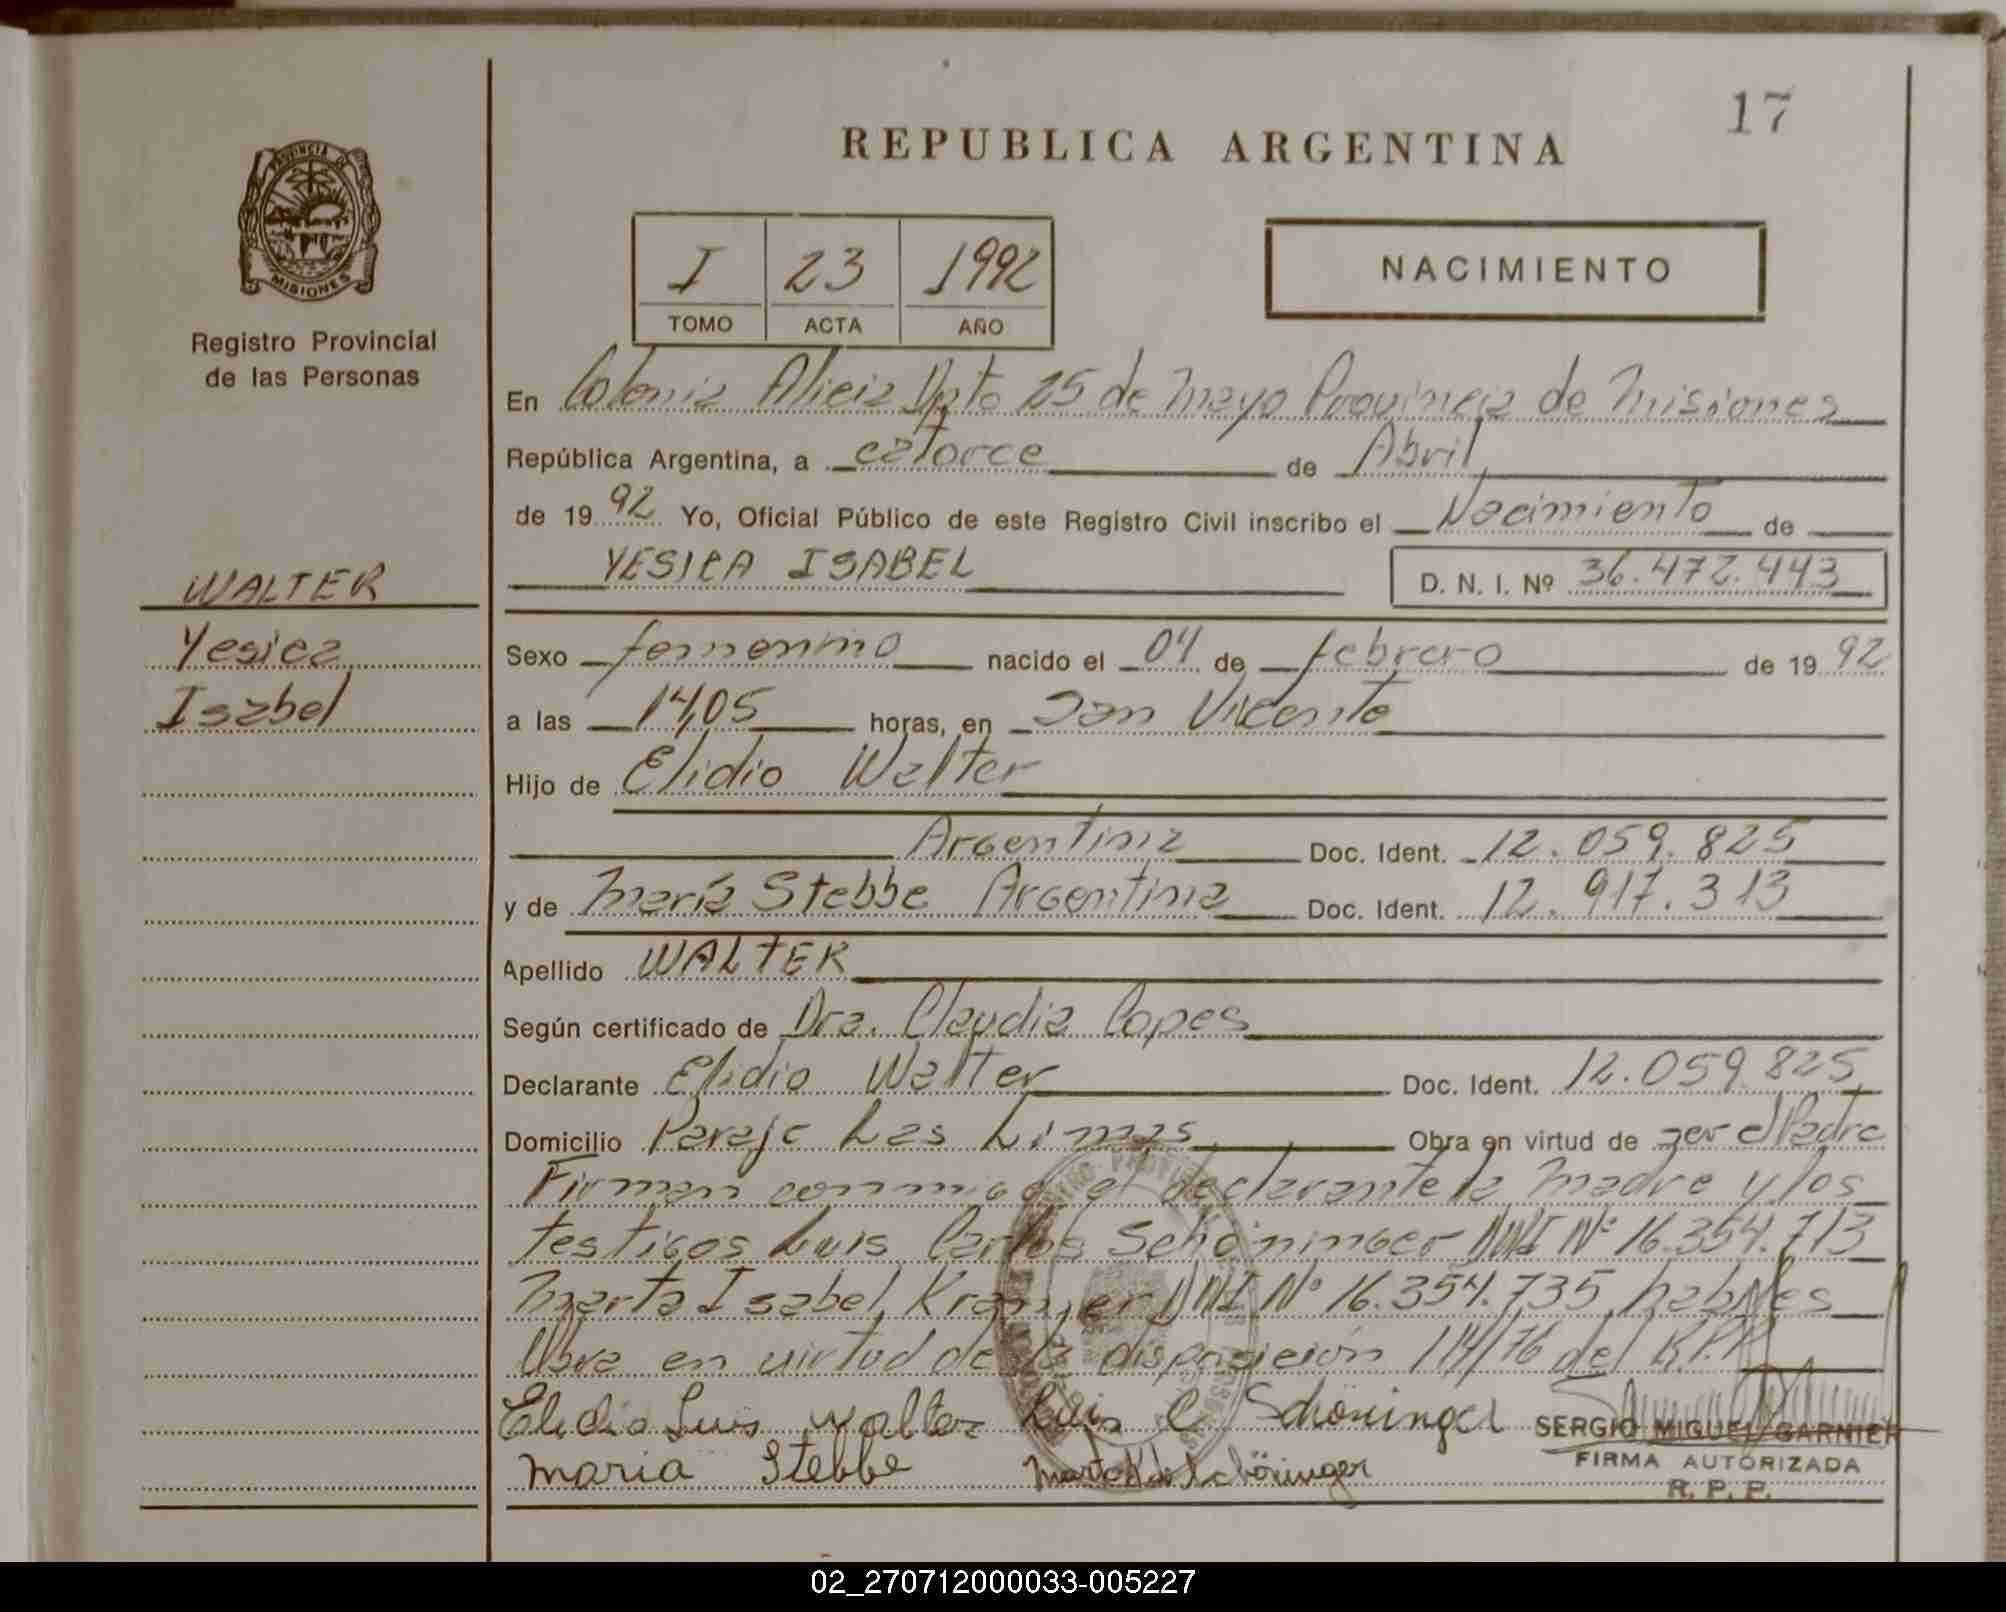 17
REPUBLICA ARGENTINA
PROVINCIA DE
MISIONES
Registro Provincial
de las Personas
I 23 1992
TOMO ACTA AÑO
NACIMIENTO
En Colonia Alicia Dpto 25 de Mayo Provincia de Misiones
República Argentina, a catorce de Abril
de 1992 Yo, Oficial Público de este Registro Civil inscribo el Nacimiento de
YESICA ISABEL D. N. I. Nº 36.472.443
WALTER
Yesica
Isabel
Sexo femenino nacido el 04 de febrero de 1992
a las 14,05 horas, en San Vicente
Hijo de Elidio Walter
Argentina Doc. Ident. 12.059.825
y de María Stebbe Argentina Doc. Ident. 12.917.313
Apellido WALTER
Según certificado de Dra. Claudia Copes
Declarante Elidio Walter Doc. Ident. 12.059.825
Domicilio Paraje Las Limas Obra en virtud de ser el Padre
Firman conmigo el declarante la Madre y los
testigos Luis Carlos Schöninger DNI Nº 16.354.713
Marta Isabel Kramer DNI Nº 16.354.735 habiles
Obra en virtud de la disposición 114/76 del R.P.P.
Elidio Luis Walter Luis C Schöninger SERGIO MIGUEL GARNIER
Maria Stebbe Marta K de Schöninger FIRMA AUTORIZADA
R. P. P.
02_270712000033-005227